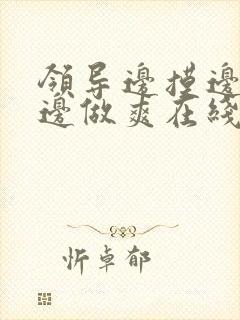 領导邊摸邊
邊做爽在綫
忻卓郁